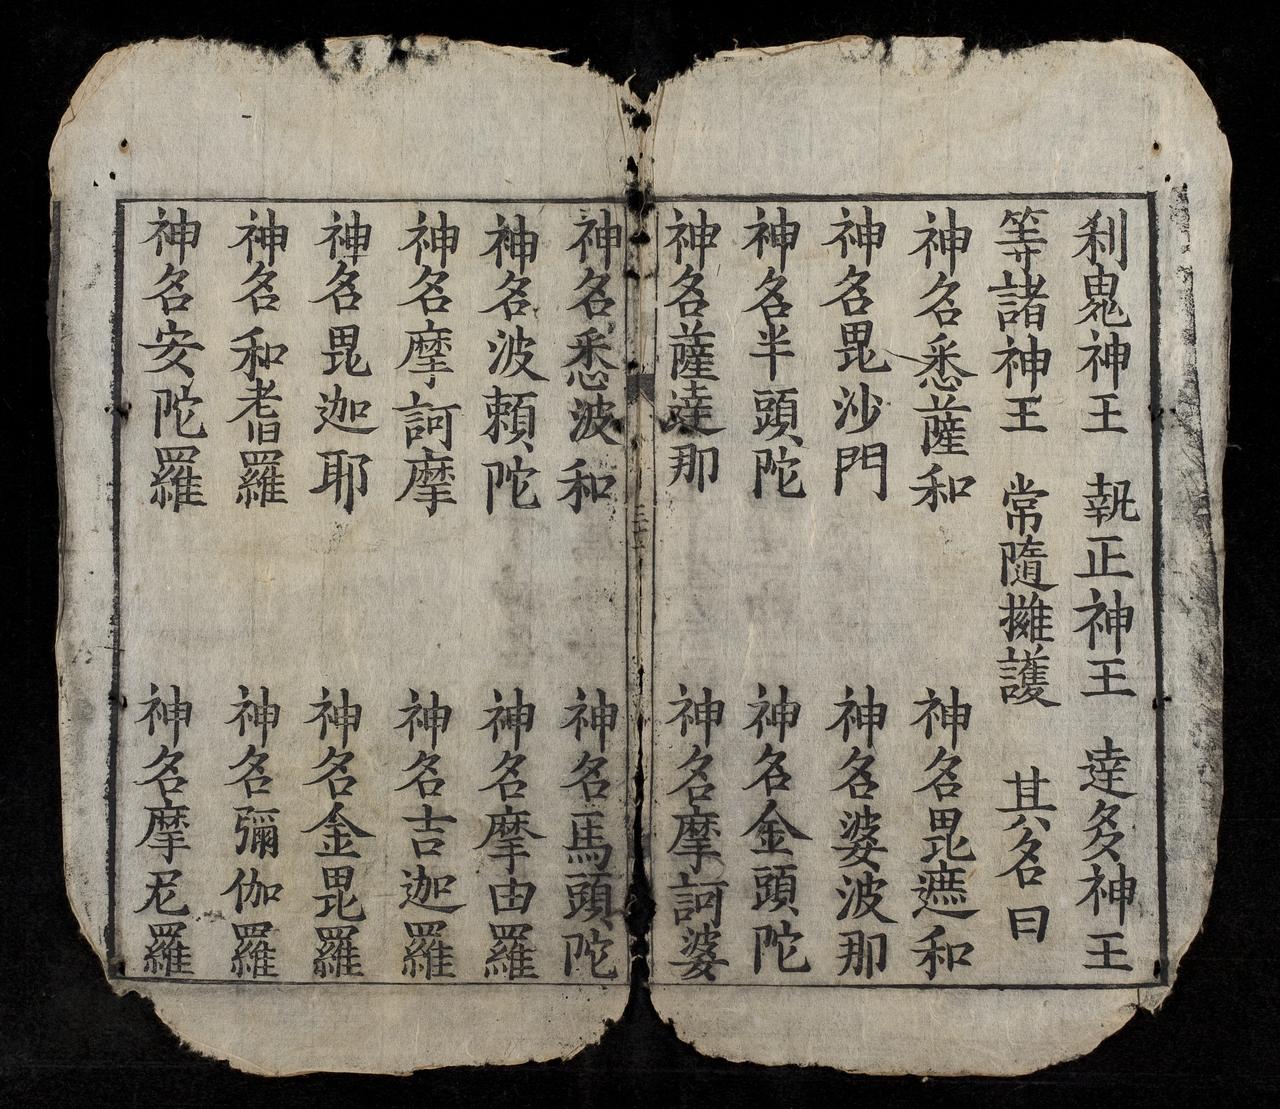 利鬼神王 執正神王 達多神王
等諸神王 常隨擁護 其名曰
神名悉薩和 神名毘遮和
神名毘沙門 神名婆波那
神名半頭陀 神名金頭陀
神名薩達那 神名摩訶婆
神名悉波和 神名馬頭陀
神名波賴陀 神名摩由羅
神名摩訶摩 神名吉迦羅
神名毘迦耶 神名金毘羅
神名和耆羅 神名彌伽羅
神名安陀羅 神名摩尼羅